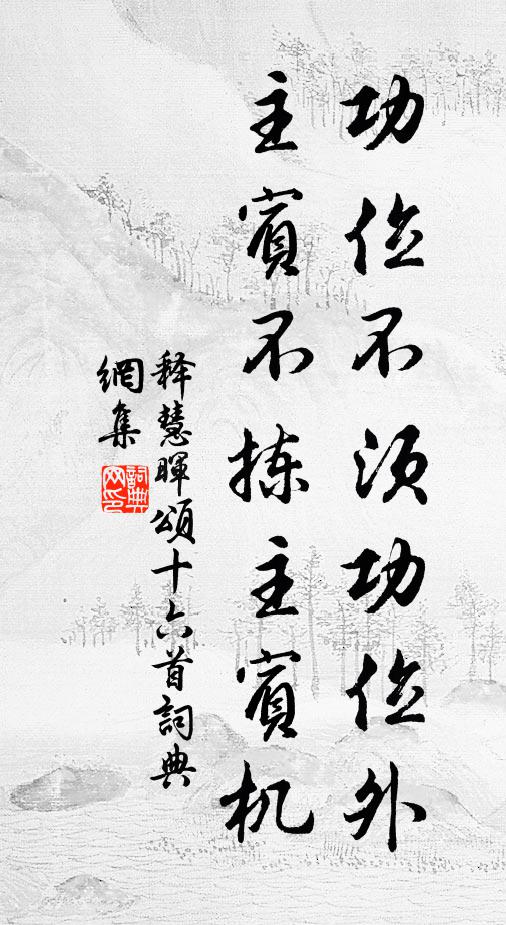 功位不须功位外
主賓不拣主賓机
释慧暉頌十六首詞典
網集
詞典
网印